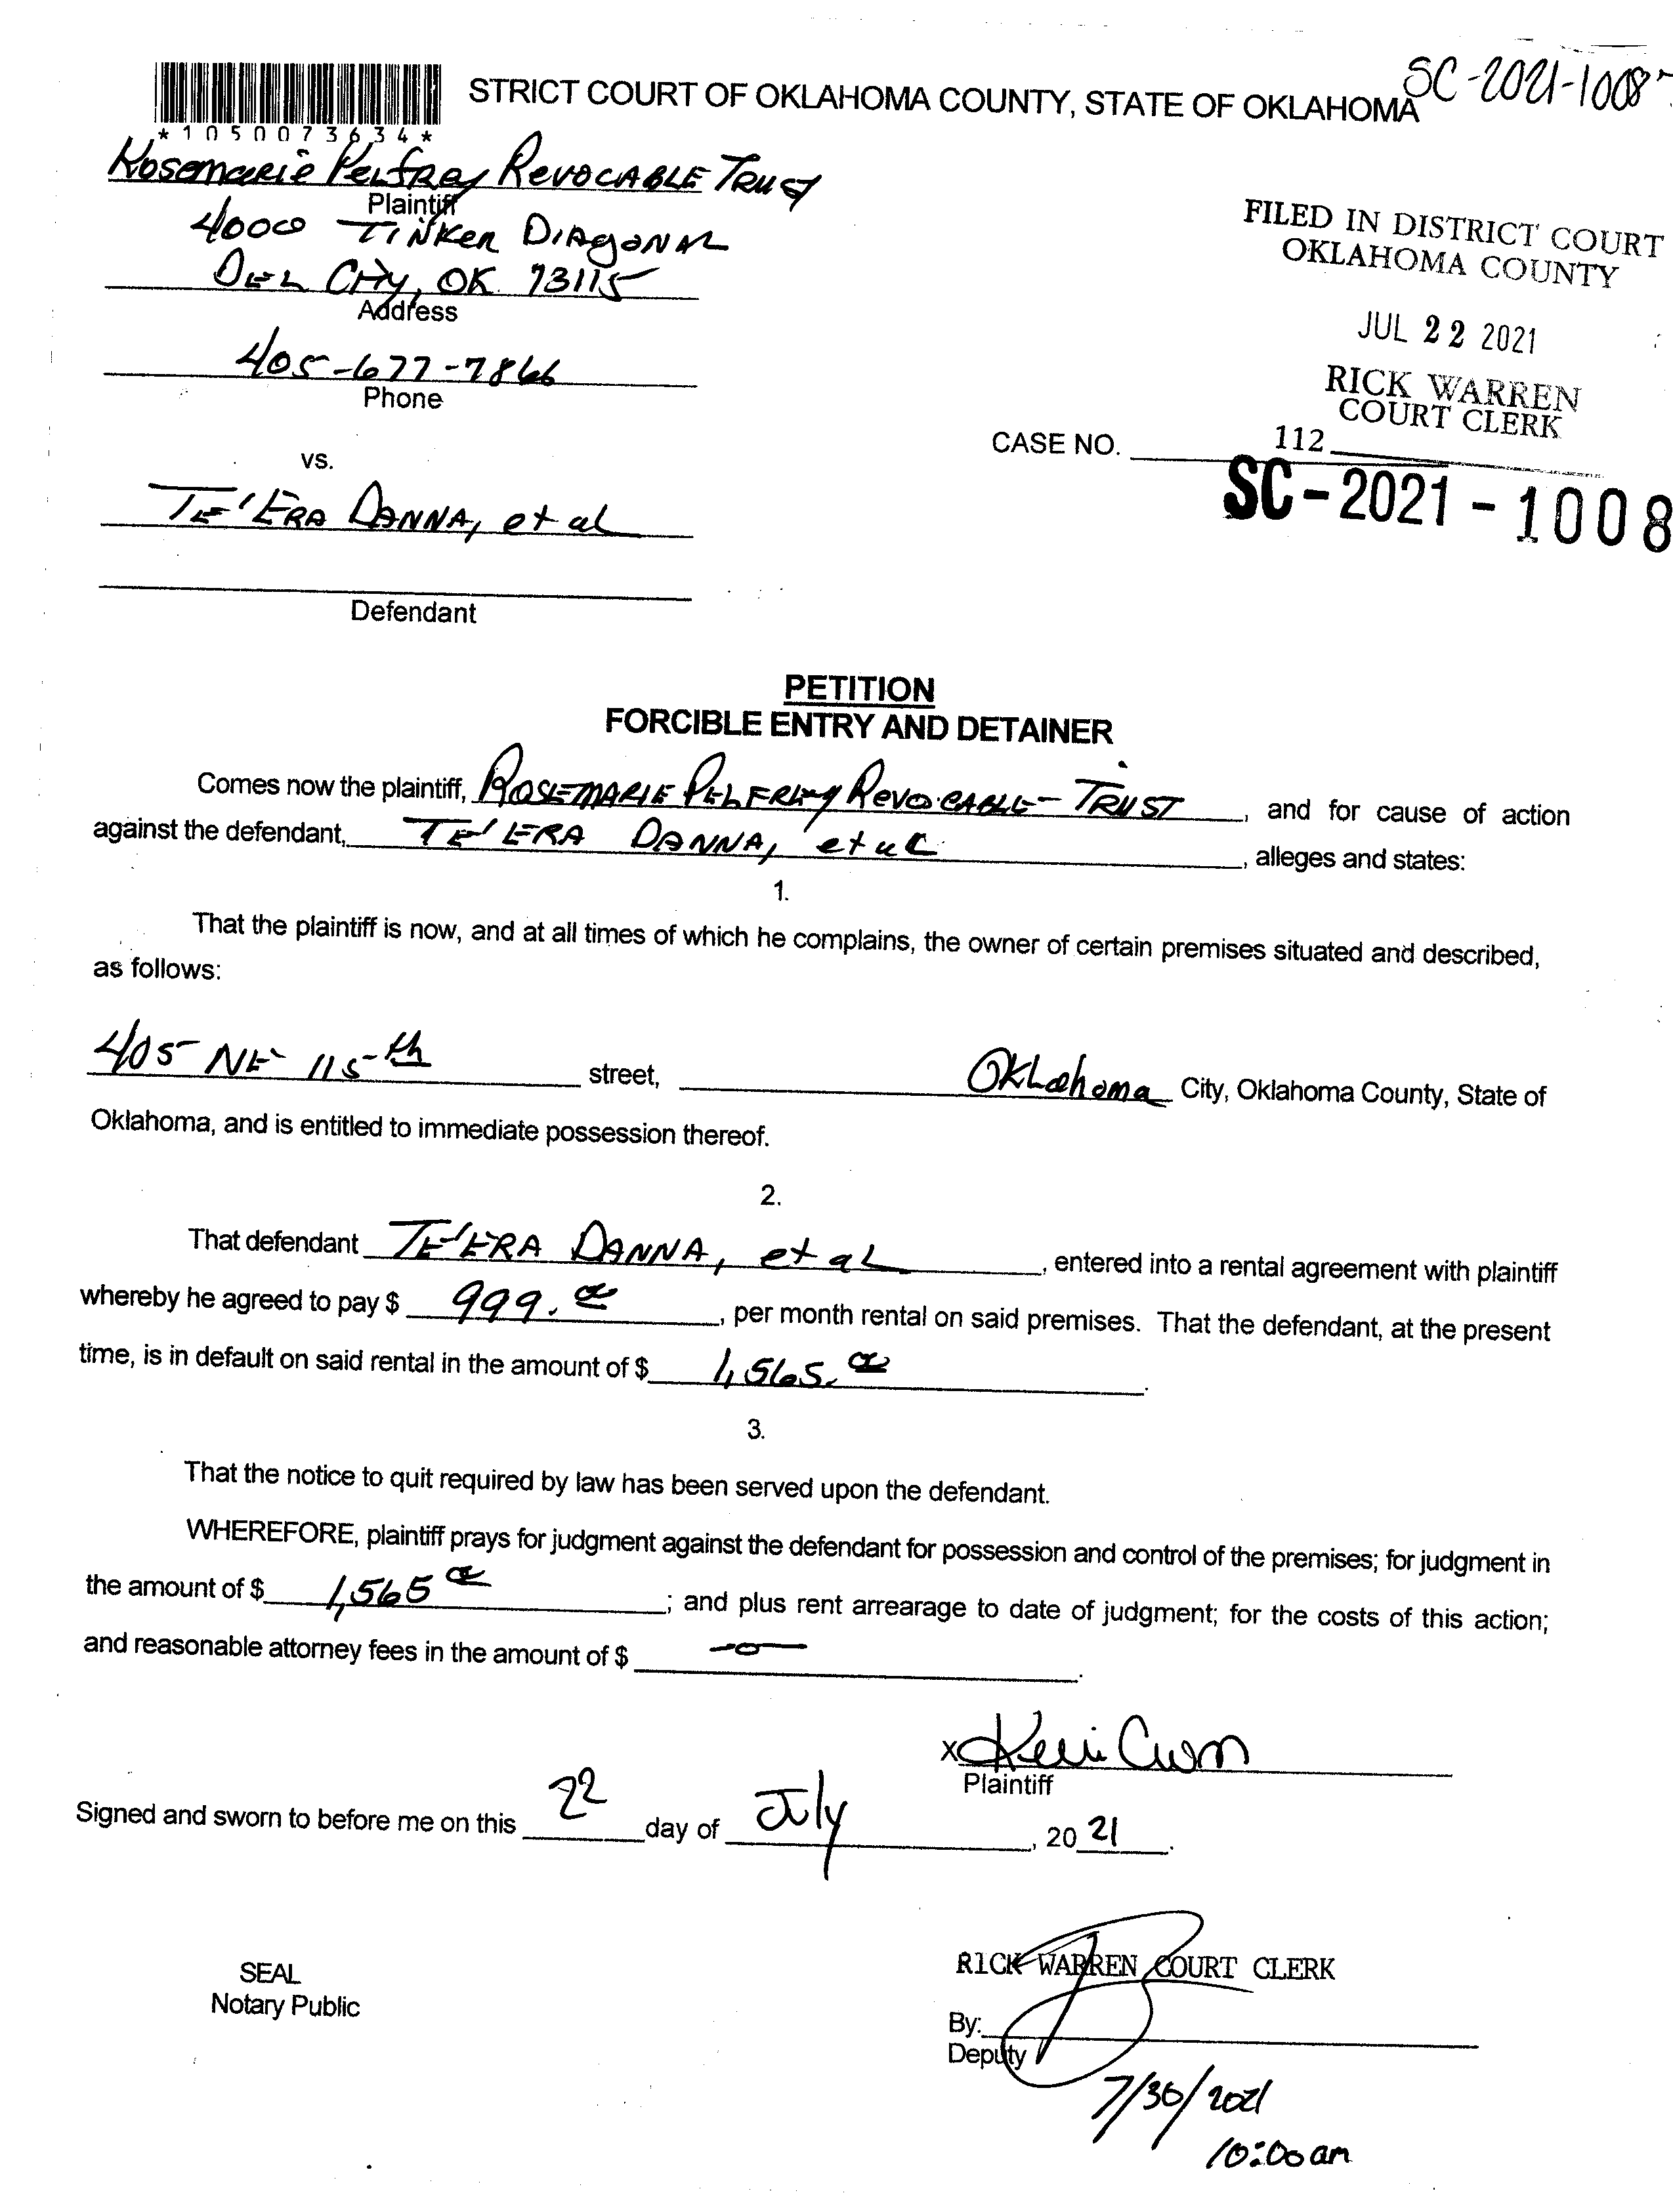 STRICT COURT OF OKLAHOMA COUNTY, STATE OF OKLAHOMA
SC-2021-1008
*1050073634*
Rosemarie Pelfrey Revocable Trust
Plaintiff
4000 Tinker Diagonal
Del City, OK 73115
Address
405-677-7866
Phone
FILED IN DISTRICT COURT
OKLAHOMA COUNTY
JUL 22 2021
RICK WARREN
COURT CLERK
CASE NO. 112
SC-2021-1008
vs.
Te'Era Danna, et al
Defendant
PETITION
FORCIBLE ENTRY AND DETAINER
Comes now the plaintiff, Rosemarie Pelfrey Revocable Trust, and for cause of action
against the defendant, Te'Era Danna, et al, alleges and states:
1.
That the plaintiff is now, and at all times of which he complains, the owner of certain premises situated and described,
as follows:
405 NE 115th street, Oklahoma City, Oklahoma County, State of
Oklahoma, and is entitled to immediate possession thereof.
2.
That defendant Te'Era Danna, et al, entered into a rental agreement with plaintiff
whereby he agreed to pay $ 999.00, per month rental on said premises. That the defendant, at the present
time, is in default on said rental in the amount of $ 1,565.00.
3.
That the notice to quit required by law has been served upon the defendant.
WHEREFORE, plaintiff prays for judgment against the defendant for possession and control of the premises; for judgment in
the amount of $ 1,565 00; and plus rent arrearage to date of judgment; for the costs of this action;
and reasonable attorney fees in the amount of $ -0-.
X
Plaintiff
Signed and sworn to before me on this 22 day of July, 2021.
SEAL
Notary Public
RICK WARREN COURT CLERK
By:
Deputy
7/30/2021
10:00am